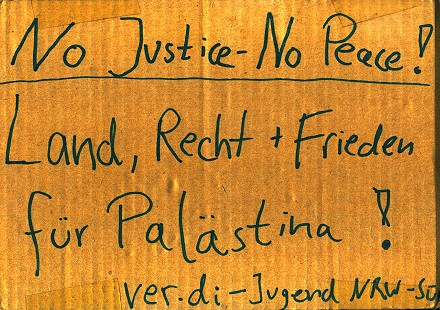 No Justice - No Peace!
Land, Recht + Frieden
für Palästina !
ver.di-Jugend NRW-Süd